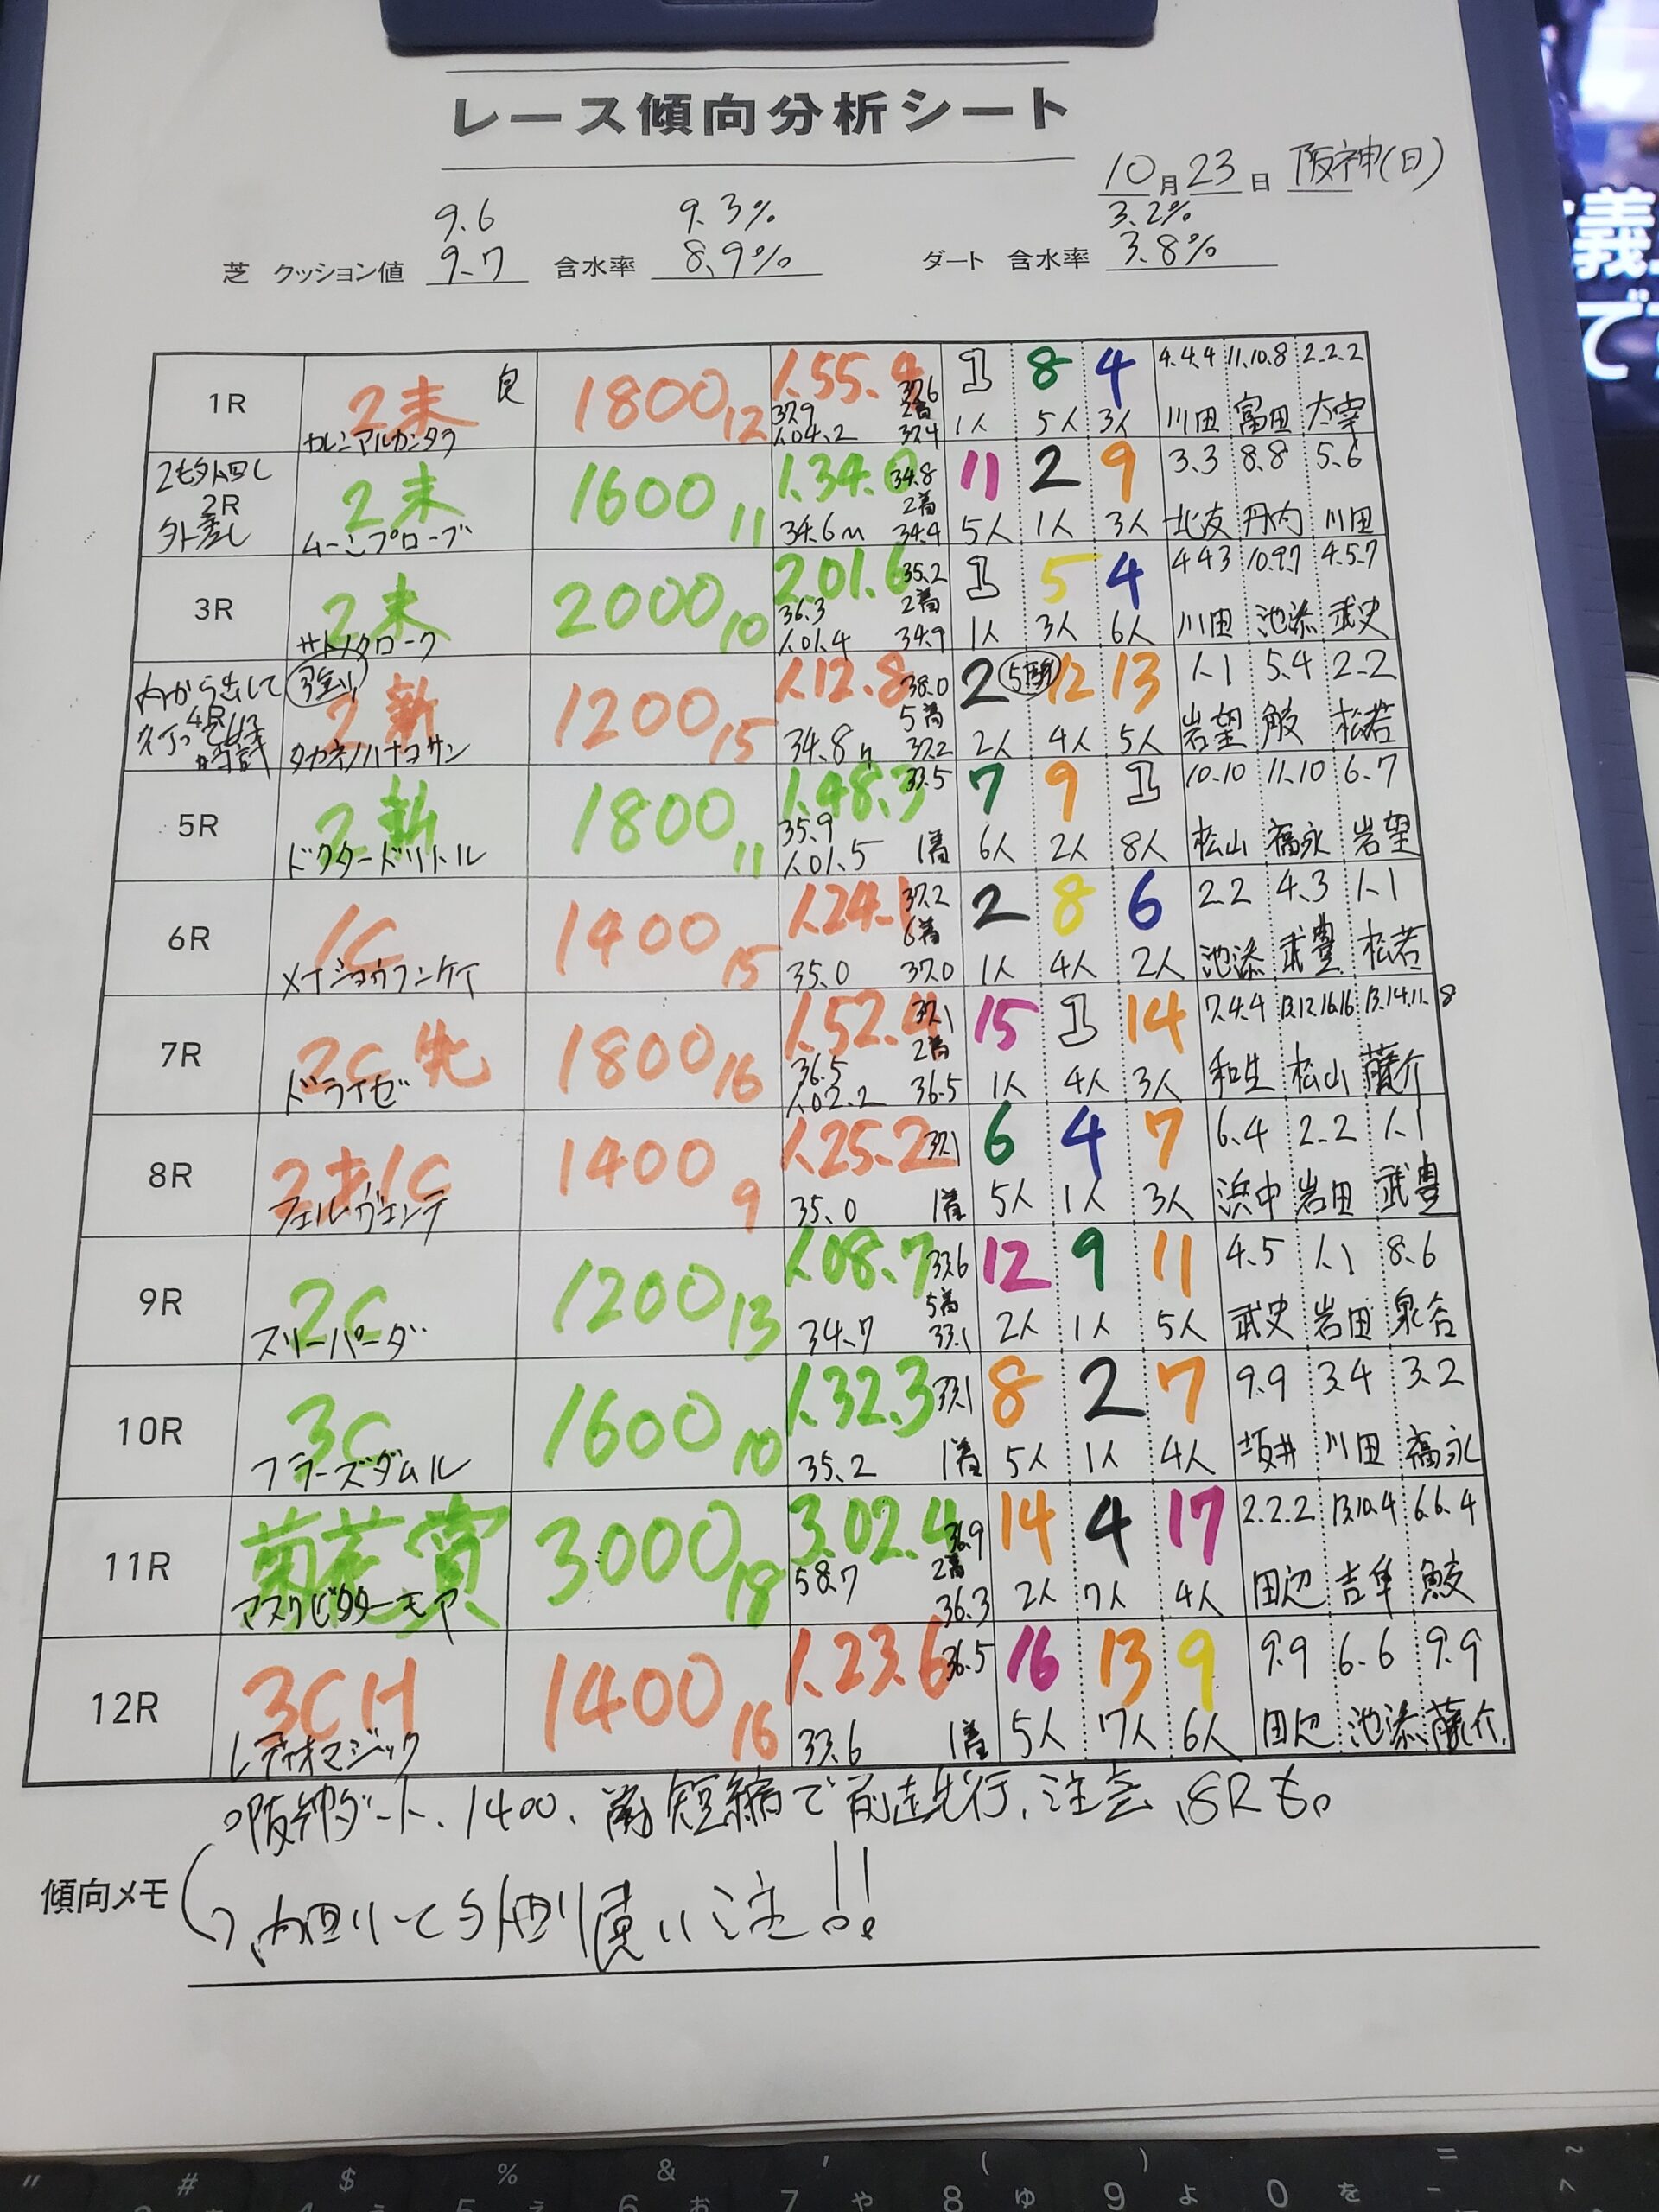 レース傾向分析シート
10月23日 阪神(日)
9.6 9.3% 3.2%
芝 クッション値 9.7 含水率 8.9% ダート 含水率 3.8%
1R 2未 良 1800 12 1.55.4 37.6 1 8 4 4.4.4 11.10.8 2.2.2
37.9 2着
カルニアルカンタラ 1.04.2 37.4 1人 5人 3人 川田 富田 太宰
2も外回し
2R 2未 1600 11 1.34.0 34.8 11 2 9 3.3 8.8 5.6
2着
外差し 34.6 34.4 5人 1人 3人 北友 丹内 川田
3R 2未 2000 10 2.01.6 35.2 1 5 4 4 4 3 10.9.7 4.5.7
36.3 2着
サトノクローク 1.01.4 34.9 1人 3人 6人 川田 池添 武史
内から出して
4R 2新 1200 15 1.12.8 38.0 2 12 13 1.1 5.4 2.2
5着
タカネノハナコサン 34.8 37.2 2人 4人 5人 岩望 鮫 松若
5R 2新 1800 11 1.48.3 33.5 7 9 1 10.10 11.10 6.7
35.9
ドクタードリトル 1.01.5 1着 6人 2人 8人 松山 福永 岩望
6R 1C 1400 15 1.24.1 37.2 2 8 6 2.2 4.3 1.1
6着
メイショウフンケイ 35.0 37.0 1人 4人 2人 池添 武豊 松若
7R 2C牝 1800 16 1.52.4 37.1 15 1 14 7.4.4 13.12.16.16 13.14.11.8
36.5 2着
ドライゼ 1.02.2 36.5 1人 4人 3人 和生 松山 藤介
8R 1400 9 1.25.2 37.1 6 4 7 6.4 2.2 1.1
フェルヴェンテ 35.0 1着 5人 1人 3人 浜中 岩田 武豊
9R 2C 1200 13 1.08.7 33.6 12 9 11 4.5 1.1 8.6
5着
スリーパーダ 34.7 33.1 2人 1人 5人 武史 岩田 泉谷
10R 3C 1600 10 1.32.3 33.1 8 2 7 9.9 3.4 3.2
フラーズダルム 35.2 1着 5人 1人 4人 坂井 川田 福永
11R 菊花賞 3000 18 3.02.4 36.9 14 4 17 2.2.2 13.10.4 6.6.4
58.7 2着
36.3 2人 7人 4人 田辺 吉隼 鮫
12R 3CH 1400 16 1.23.6 36.5 16 13 9 9.9 6.6 9.9
レディオマジック 33.6 1着 5人 17人 6人 田辺 池添 藤介
阪神ダート、1400、短縮で前走先行、注意、8Rも。
傾向メモ 注!!